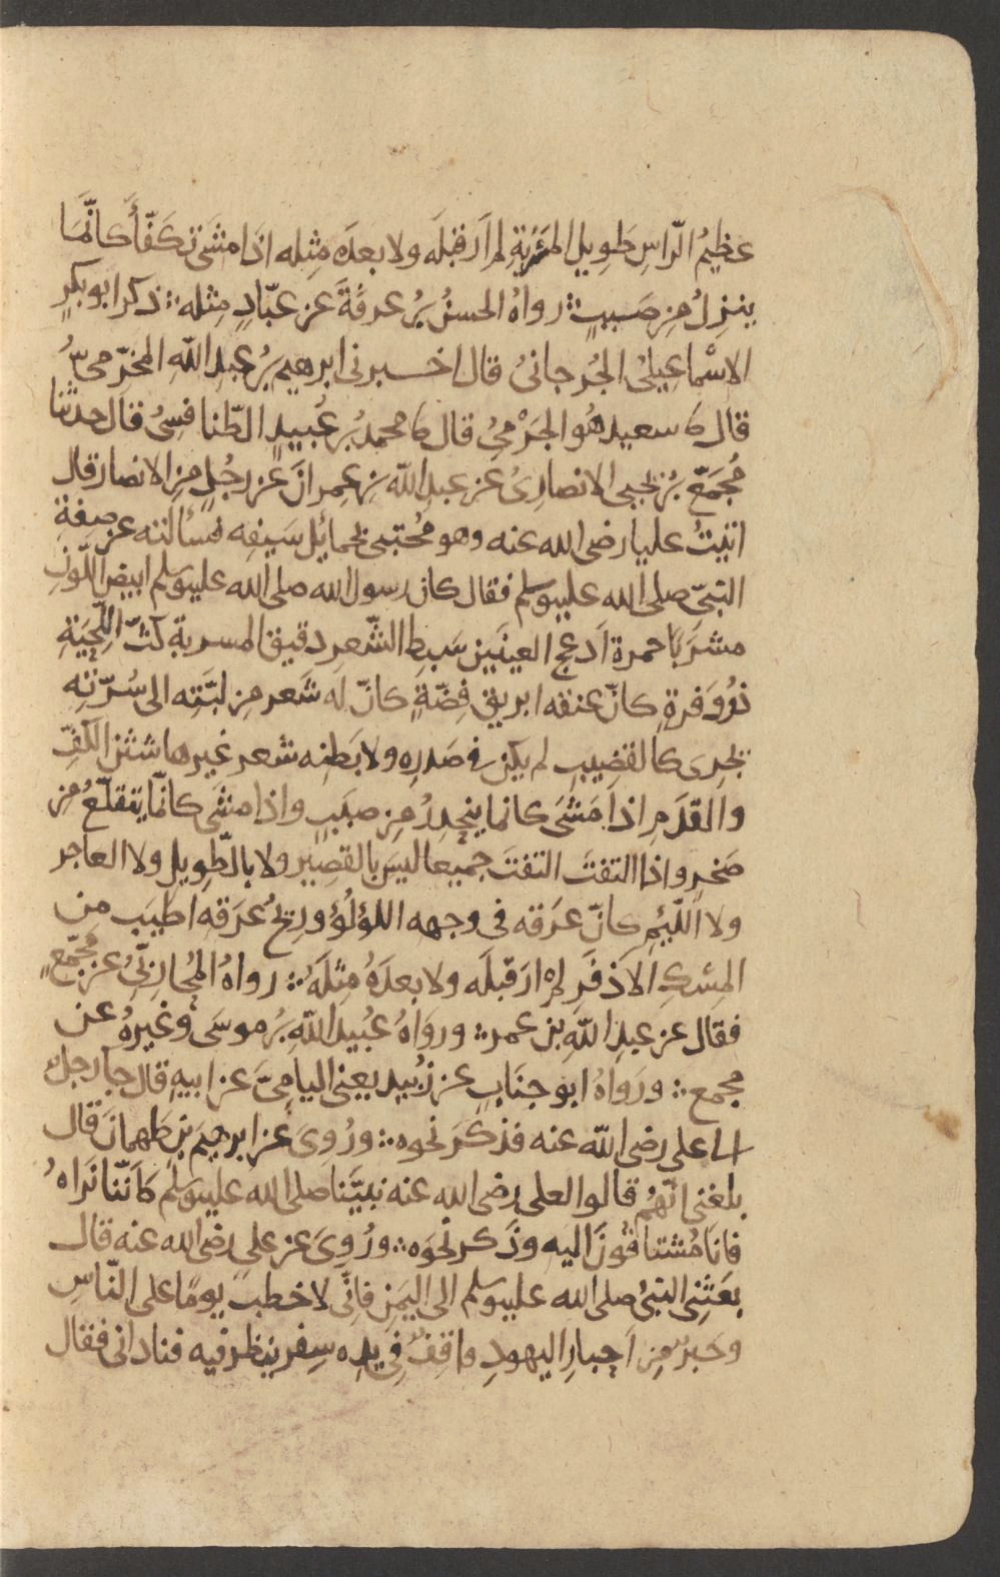 عظيمُ الرّاسِ طَوِيل المَسْرُبَةِ لم اَرَ قبلَه ولا بعدَه مِثله اذَا مشَى تكَفّأَ كانّمَا
ينزِلُ مِن صَببٍ ؛ رواهُ الحسنُ بنُ عرفةَ عن عبّادٍ مِثله ؛ ذكر ابو بكرٍ
الاسْماعيلىُ الجُرجانىُ قال اخــبرنى ابرهيم بنُ عبدِ اللّه المخرّمىُّ
قال ںا سعيد هُو الجَرْمىُ قال ںا محمد بنُ عُبيدٍ الطّنافسىُ قال حدثنا
مُجمّع بنُ يحيى الانصارِىُ عن عبدِ اللّه بن عِمرانَ عن رجُلٍ مِن الانصار قال
اتيتُ عليا رضى الله عنه وهو مُحتبى بحمائل سَيفِه فسالته عن صِفةِ
النبىّ صلى الله عليه وسلم فقال كان رسول الله صلى الله عليه وسلم ابيضَ اللّونِ
مشرَبًا حمرة اَدعج العينَين سَبِط الشّعرِ دقيق المسربةِ كثّ اللّحيَةِ
ذو وَفرةٍ كانّ عنقه ابريق فِضّةٍ كانَ له شَعر مِن لبّتِه الى سُرّته
يجرِى كالقضِيبِ لم يكن فى صَدرِه ولا بَطنِه شعر غيرها شثن الكفِّ
والقدَمِ اذا مَشَى كانما ينحدِرُ مِن صبَبٍ واذا مشَى كانّما يتقلّعُ مِن
صَخرٍ واذا التفتَ التفتَ جميعا ليسَ بالقصِير ولا بالطّوِيل ولا العاجر
ولا اللّئيم كانّ عَرَقه فى وجهه اللؤلُؤ ورِيحُ عَرَقه اطيَب مِن
المِسْكِ الاَذفَرِ لمْ ارَ قبْلَه ولا بعدَهُ مثلَهُ ؛ رواهُ المُحارِبىُّ عن مجَمّعٍ
فقال عن عبدِ اللّهِ بن عمر ؛ ورَواهُ عُبيد اللّه بنُ موسَى وغيرهُ عن
مجمع ؛ ورَواهُ ابو جنَابٍ عن زُبيد يعنى اليامىَّ عن ابيهِ قال جا رجلٌ
الى على رضى اللّه عنه فذكَر نحوه ؛ ورُوِىَ عن ابرهيمَ بنِ طَهمانَ قال
بلغنى انّهُم قالوا لعلى رضى الله عنه نبيَّنا صلى الله عليه وسلم كاَنّنا نَراهُ
فانا مُشتاقُونَ اليه وذَكر نحوَه ؛ ورُوِىَ عن علىٍ رضى الله عنه قال
بعَثنِى النبىُ صلى الله عليه وسلم الى اليَمنِ فانّى لاخطبُ يومًا على النّاسِ
وحَبرٌ مِن اَحبارِ اليهودِ واقِفٌ فى يدِه سِفر ينظر فيه فنادانى فقال